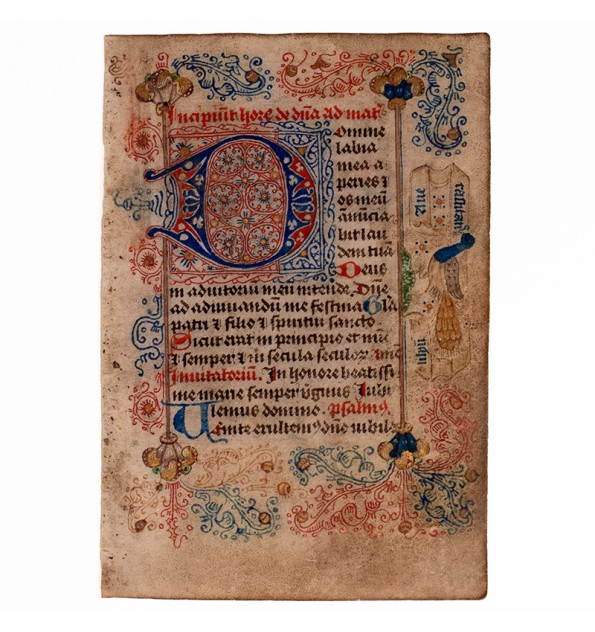 Incipiūt hore de dn̄a ad mat
Domine
labia
mea a
peries ⁊
os meū
ān̄ūcia
bit lau
dem tuā
Deus
in adiutoriū meū intende. Dn̄e
ad adiuuandū me festina Gl'a
patri ⁊ filio ⁊ spiritui sancto
Sicut erat in principio et nūc
⁊ semper ⁊ in secula seculoꝝ. ame
Inuitatoriū. In honore beatissi
me marie semper v̓ginis Iubi
lemus domino. psalmꝰ.
Uenite exultemꝰ dn̄o iubile
Aue